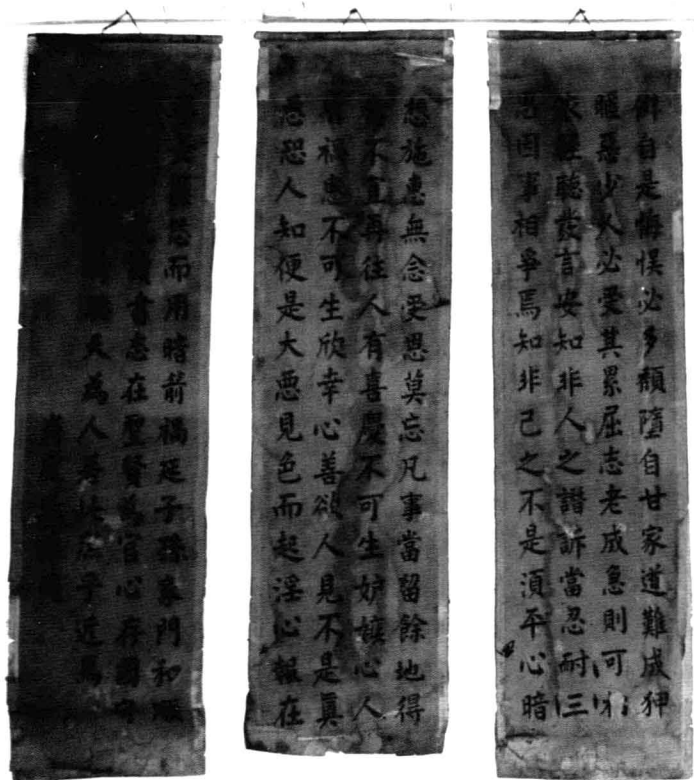 僻自是悔悞必多頹墮自甘家道難成狎
暱惡少久必受其累屈志老成急則可相
依輕聽發言安知非人之譖訴當忍耐三
思因事相爭焉知非己之不是須平心暗
想施惠無念受恩莫忘凡事當留餘地得
不宜再往人有喜慶不可生妒嫉心人
禍患不可生欣幸心善欲人見不是眞
惡恐人知便是大悪見色而起淫心報在
匿怨而用暗箭禍延子孫家門和順
讀書志在聖賢爲官心存國守
聽天為人若此庶乎近焉